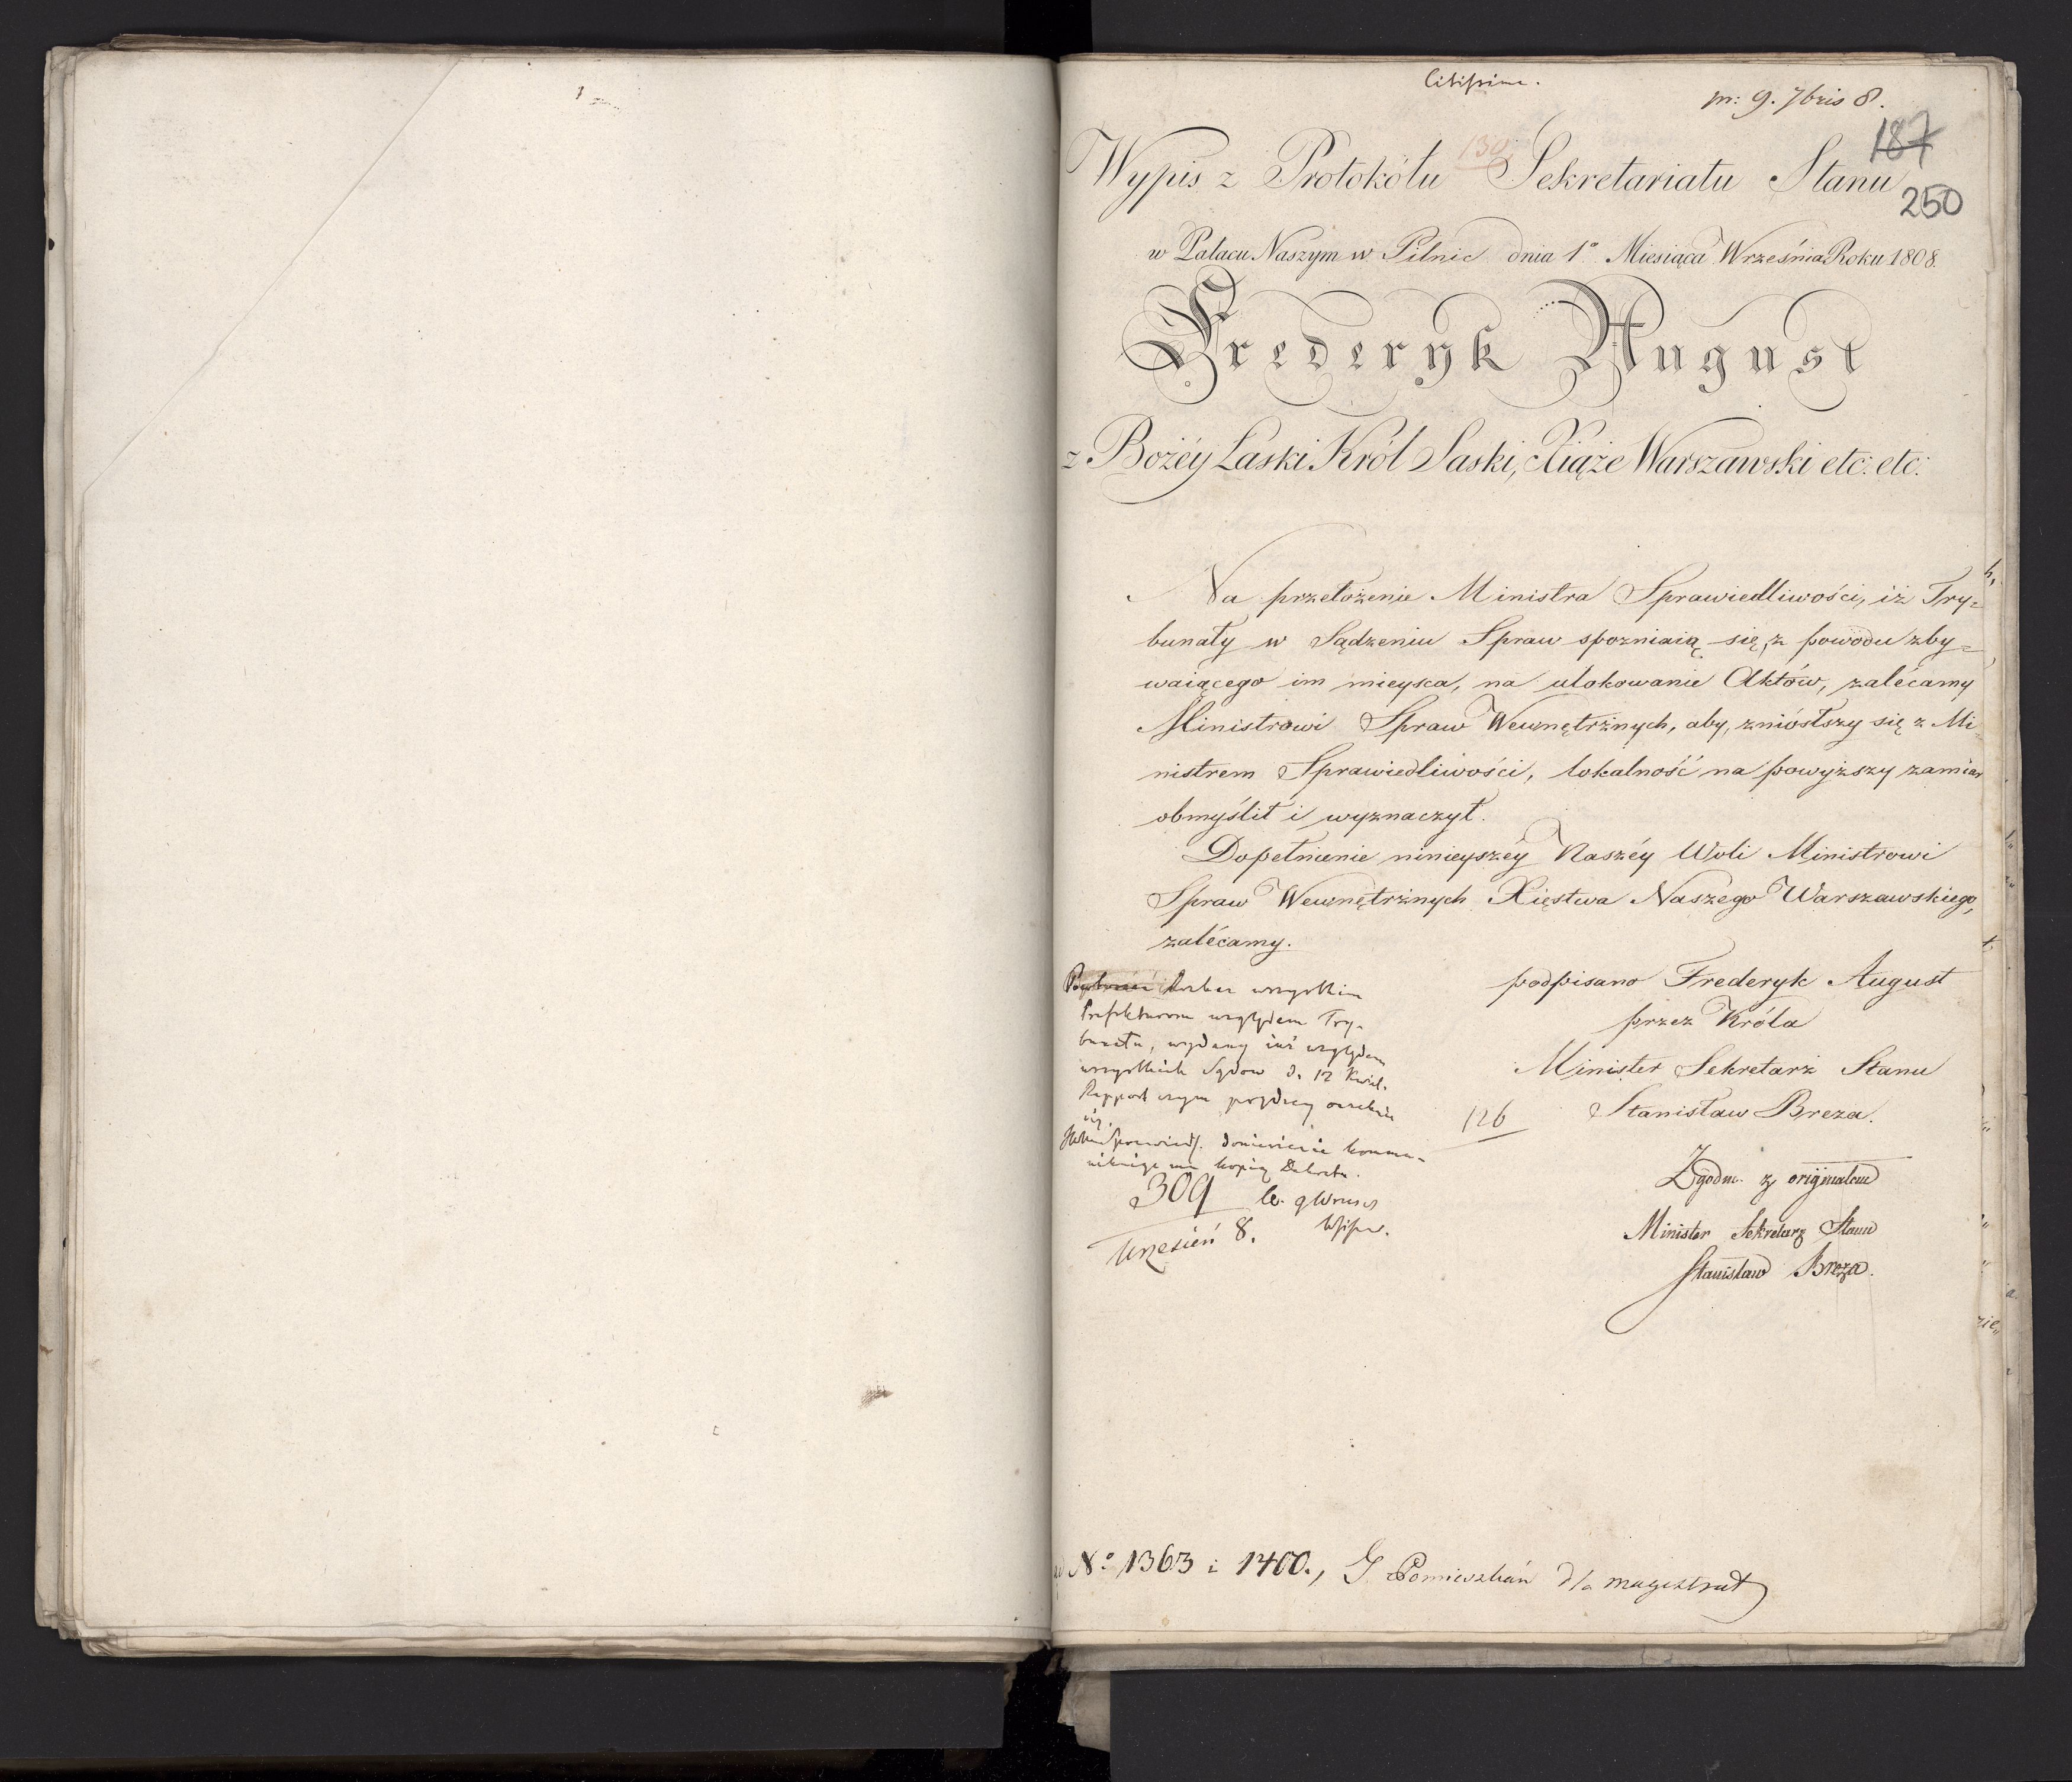 Citissime.
pr: 9. 7bris 8.
187
130
Wypis z Protokółu Sekretariatu Stanu
250
w Pałacu Naszym w Pilnic dnia 1º Miesiąca Września Roku 1808.
Frederyk August
z Bożéy Łaski Król Saski, Xiąże Warszawski etc: etc:
Na przełożenie Ministra Sprawiedliwości, iż Try=
bunały w Sądzeniu Spraw spozniaią się, z powodu zby=
waiącego im mieysca, na ulokowanie Aktów, zalécamy
Ministrowi Spraw Wewnętrznych, aby, zniósłszy się z Mi=
nistrem Sprawiedliwości, lokalność na powyższy zamiar
obmyślił i wyznaczył.
Dopełnienie ninieyszéy Naszéy Woli Ministrowi
Spraw Wewnętrznych Xięstwa Naszego Warszawskiego,
zalécamy.
podpisano Frederyk August
przez Króla
Minister Sekretarz Stanu
Stanisław Breza.
Zgodn. z originałem
Minister Sekretarz Stanu
Stanisław Breza.
wszystkim
Prefekturom względem Try-
bunału, wydany iuż względem
wszystkich Sądow d. 12 Kwiet.
Rapport
kopią Dekretu.
126
309
Wrzesień 8.
Nº 1363 i 1400., G. Pomieszkań dla magistrat